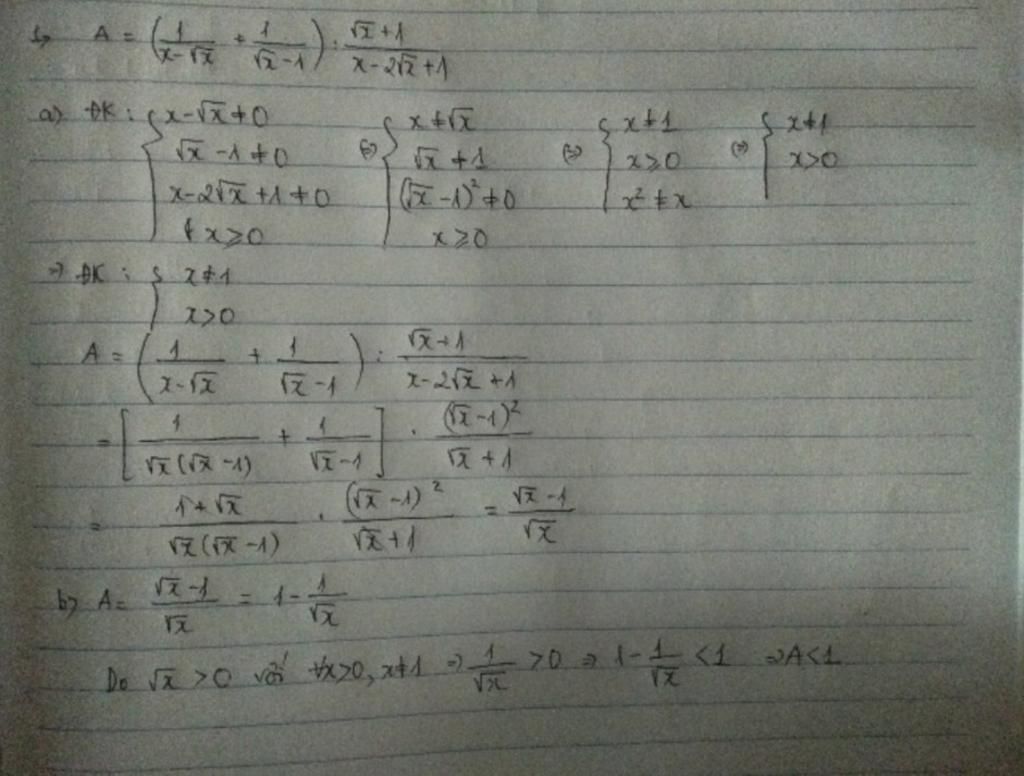 1, A = (1/(x-√x) + 1/(√x-1)) : (√x+1)/(x-2√x+1)
a) ĐK : { x-√x ≠ 0 (=) { x ≠ √x (=) { x ≠ 1 (=) { x ≠ 1
√x - 1 ≠ 0 √x ≠ 1 x ≥ 0 x > 0
x - 2√x + 1 ≠ 0 (√x - 1)² ≠ 0 x² ≠ x
x ≥ 0 x ≥ 0
=) ĐK : { x ≠ 1
x > 0
A = (1/(x-√x) + 1/(√x-1)) : (√x+1)/(x-2√x+1)
= [1/(√x(√x-1)) + 1/(√x-1)] . (√x-1)²/(√x+1)
= (1+√x)/(√x(√x-1)) . (√x-1)²/(√x+1) = (√x-1)/√x
b) A = (√x-1)/√x = 1 - 1/√x
Do √x > 0 với ∀x>0, x≠1 => 1/√x > 0 => 1 - 1/√x < 1 => A < 1